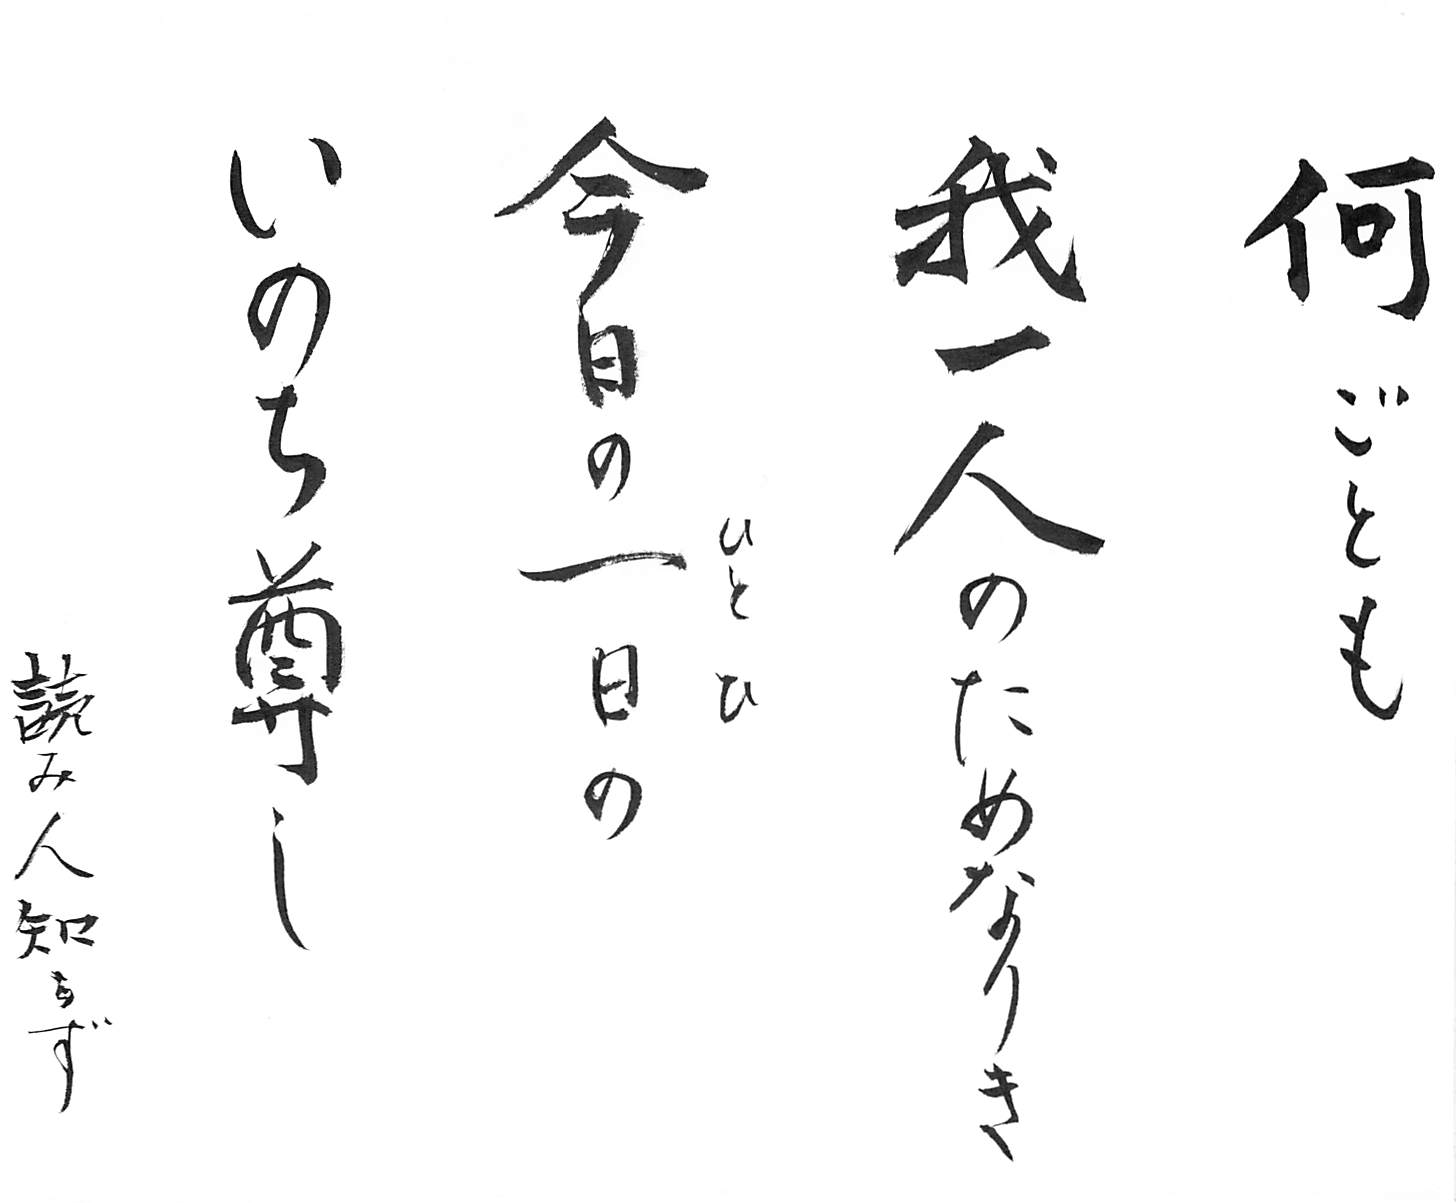 何ごとも
我一人のためなりき
今日の一日の
ひとひ
いのち尊し
読み人知らず